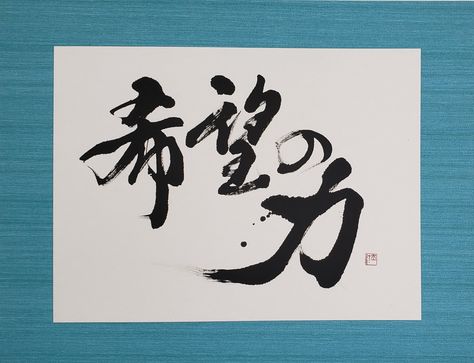 希望の力